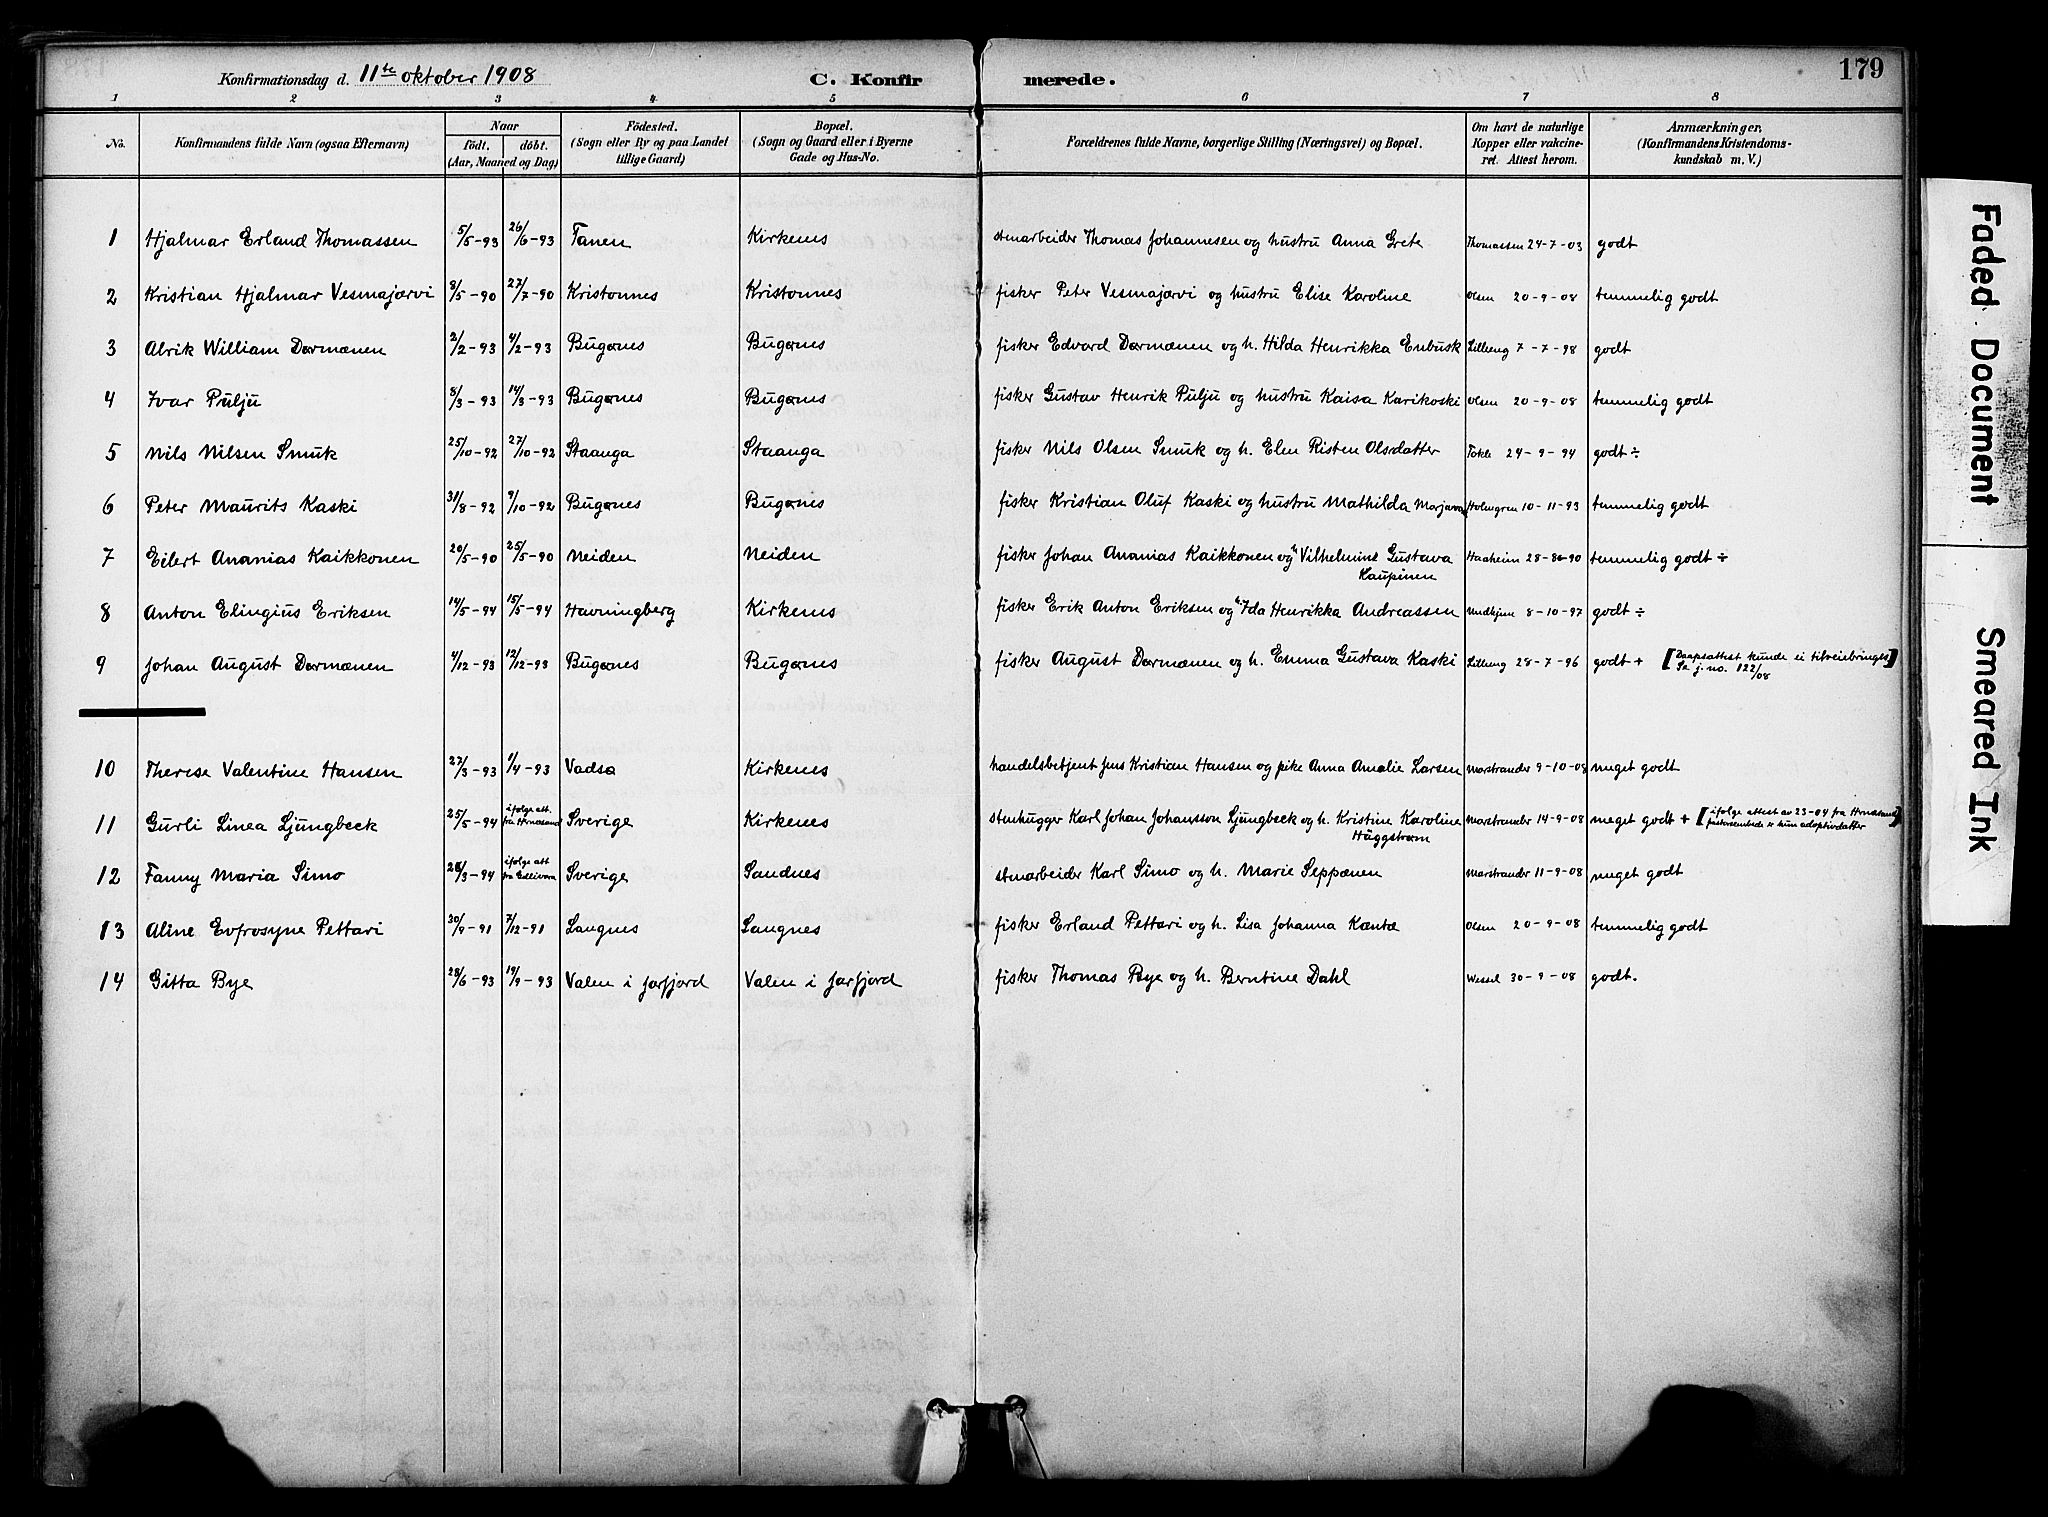 Konfirmationsdag d. 11te oktober 1908 C. Konfirmerede. 179
1 2 3 4 5 6 7 8
No. Konfirmandens fulde Navn (ogsaa Efternavn) Naar født. døbt. (Aar, Maaned og Dag) Fødested. (Sogn eller By og paa Landet tillige Gaard) Bopæl. (Sogn og Gaard eller i Byerne Gade og Hus-No. Forældrenes fulde Navne, borgerlige Stilling (Næringsvei) og Bopæl. Om havt de naturlige Kopper eller vakcineret. Attest herom. Anmærkninger. (Konfirmandens Kristendomskundskab m. V.)
1 Hjalmar Erland Thomassen 5/5-93 26/6-93 Tanen Kirkenes stenarbeider Thomas Johannesen og hustru Anna Grete Thomassen 24-7-03 godt
2 Kristian Hjalmar Vesmajærvi 8/5-90 27/7-90 Kristonnes Kristonnes fisker Peter Vesmajærvi og hustru Elise Karoline Olsen 20-9-08 temmelig godt
3 Alrik William Dørmænen 2/2-93 4/2-93 Bugønes Bugønes fisker Edvard Dørmænen og h. Hilda Henrikka Enbusk Lilleeng 7-7-98 godt
4 Ivar Pulju 8/3-93 14/3-93 Bugønes Bugønes fisker Gustav Henrik Pulju og hustru Kaisa Karikoski Olsen 20-9-08 temmelig godt
5 Nils Nilsen Smuk 25/10-92 27/10-92 Staanga Staanga fisker Nils Olsen Smuk og h. Elen Risten Olsdatter Tokle 24-9-94 godt ÷
6 Peter Maurits Kaski 31/8-92 9/10-92 Bugønes Bugønes fisker Kristian Oluf Kaski og hustru Mathilda Marjavaa Holmgren 10-11-93 temmelig godt
7 Eilert Ananias Kaikkonen 20/5-90 25/5-90 Neiden Neiden fisker Johan Ananias Kaikkonen og h. Vilhelmine Gustava Haaheim 28-8-90 temmelig godt ÷
Kaupinen
8 Anton Elingius Eriksen 14/5-94 15/5-94 Havningberg Kirkenes fisker Erik Anton Eriksen og h. Ida Henrikka Andreassen Undhjem 8-10-97 godt ÷
9 Johan August Dørmænen 4/12-93 12/12-93 Bugønes Bugønes fisker August Dørmænen og h. Emma Gustava Kaski Lilleeng 28-7-96 godt + [Daapsattest kunde ei tilveiebringes
Se j. no. 122/08]
10 Therese Valentine Hansen 27/3-93 1/4-93 Vadsø Kirkenes handelsbetjent Jens Kristian Hansen og pike Anna Amalie Larsen Marstrander 9-10-08 meget godt
11 Gurli Linea Ljungbeck 25/5-94 ifølge att. fra Hernøsand Sverige Kirkenes stenhugger Karl Johan Johansson Ljungbeck og h. Kristine Karoline Marstrander 14-9-08 meget godt + [ifølge attest av 23-04 fra Hernøsand
Häggstrøm pastorsembede er hun adoptivdatter]
12 Fanny Maria Simo 28/3-94 ifølge att fra Gellivara Sverige Sandnes stenarbeider Karl Simo og h. Marie Seppænen Marstrander 11-9-08 meget godt
13 Aline Evfrosyne Pettari 30/9-91 7/12-91 Langnes Langnes fisker Erland Pettari og h. Lisa Johanna Kæntæ Olsen 20-9-08 temmelig godt
14 Gitta Bye 28/6-93 19/9-93 Valen i Jarfjord Valen i Jarfjord fisker Thomas Bye og h. Berntine Dahl Wessel 30-9-08 godt.
Faded Document
Smeared Ink